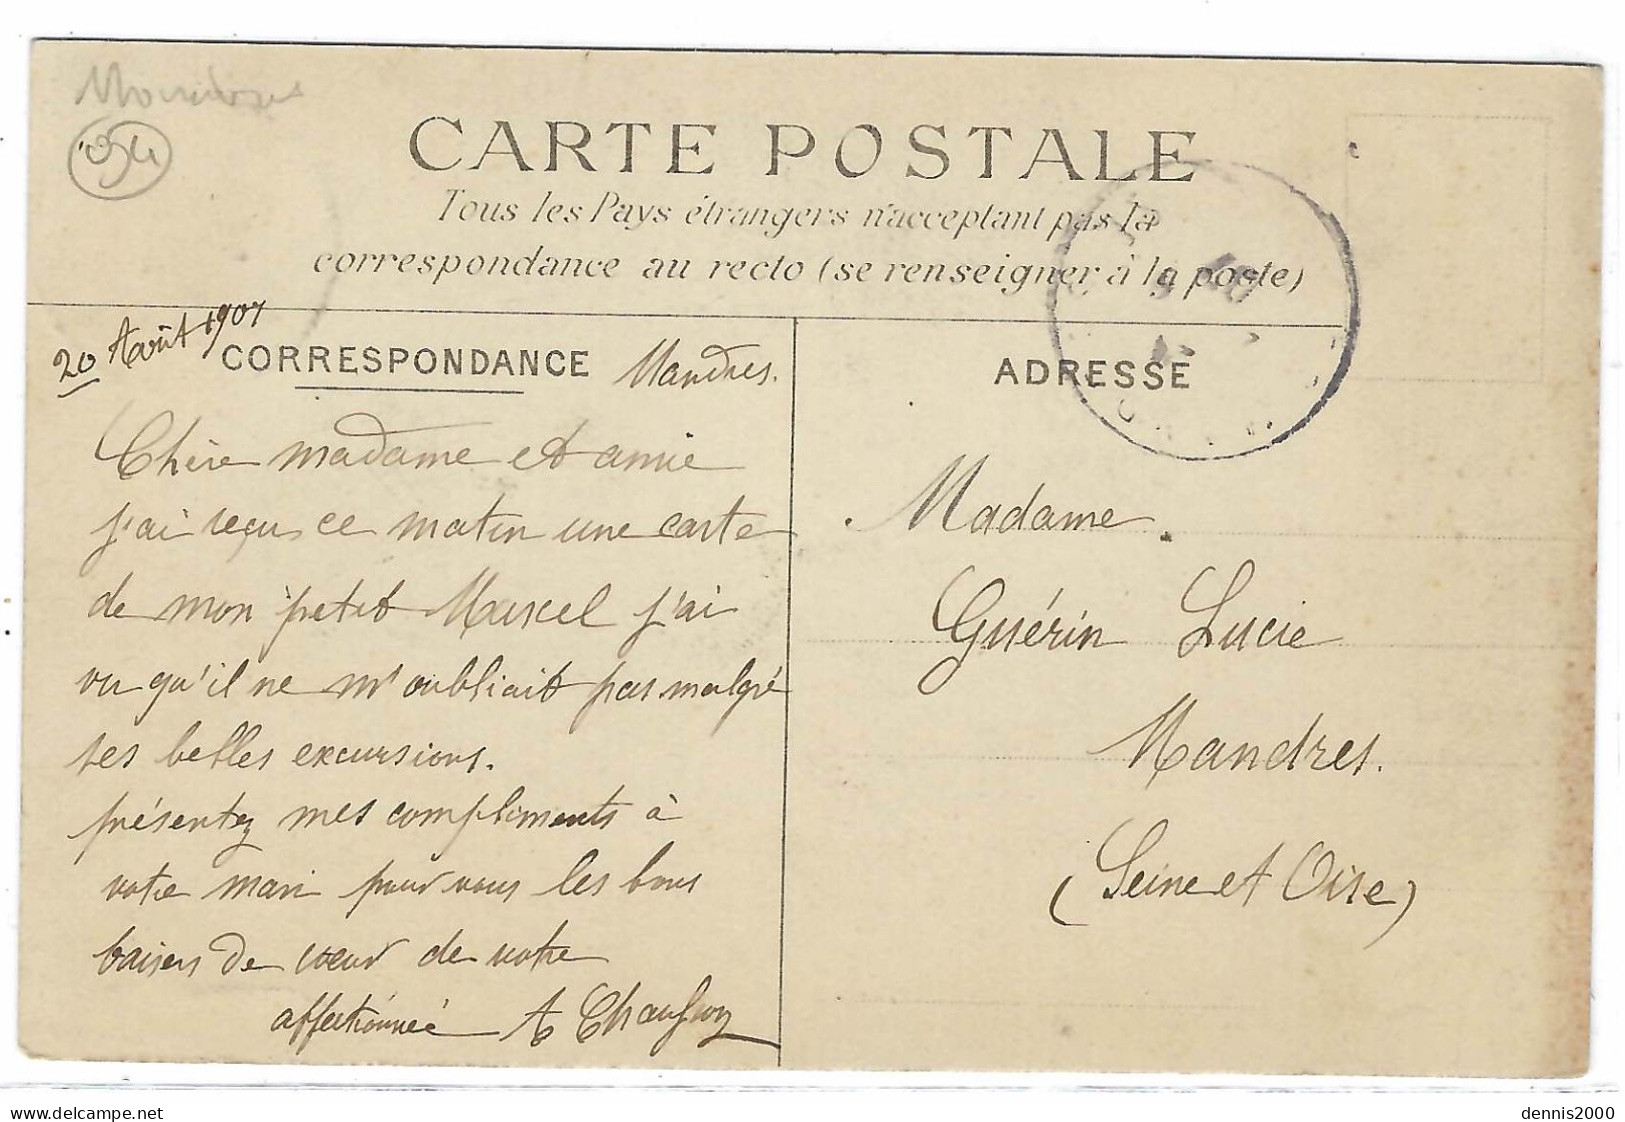 94
CARTE POSTALE
Tous les Pays étrangers n'acceptant pas la
correspondance au recto (se renseigner à la poste)
20 Août 1907
CORRESPONDANCE
Mandres.
Chère madame et amie
j'ai reçu ce matin une carte
de mon petit Marcel j'ai
vu qu'il ne m'oubliait pas malgré
ses belles excursions.
présentez mes compliments à
votre mari pour vous les bons
baisers de cœur de votre
affectionnée A
ADRESSE
Madame.
Guérin Lucie
Mandres.
(Seine et Oise)
delcampe.net
dennis2000